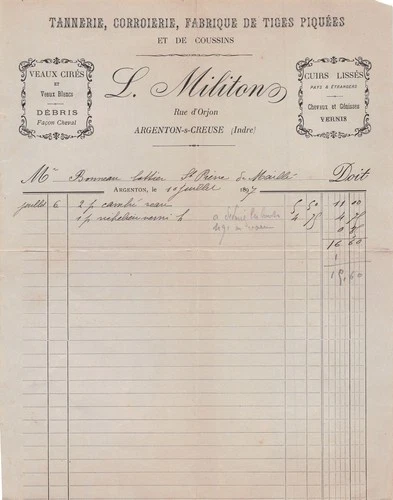 TANNERIE, CORROIERIE, FABRIQUE DE TIGES PIQUÉES
ET DE COUSSINS
VEAUX CIRÉS
ET
Veaux Blancs
DÉBRIS
Façon Cheval
L. Militon
Rue d'Orjon
ARGENTON-s-CREUSE (Indre)
CUIRS LISSÉS
PAYS & ÉTRANGERS
Chevaux et Génisses
VERNIS
Mr Bonneau St Pierre de Maillé Doit
ARGENTON, le 10 juillet 1897
juillet 6 2 p cambré veau 5 50 11 00
1 p richelieu verni h 4 75 4 75
16 60
1
15,60